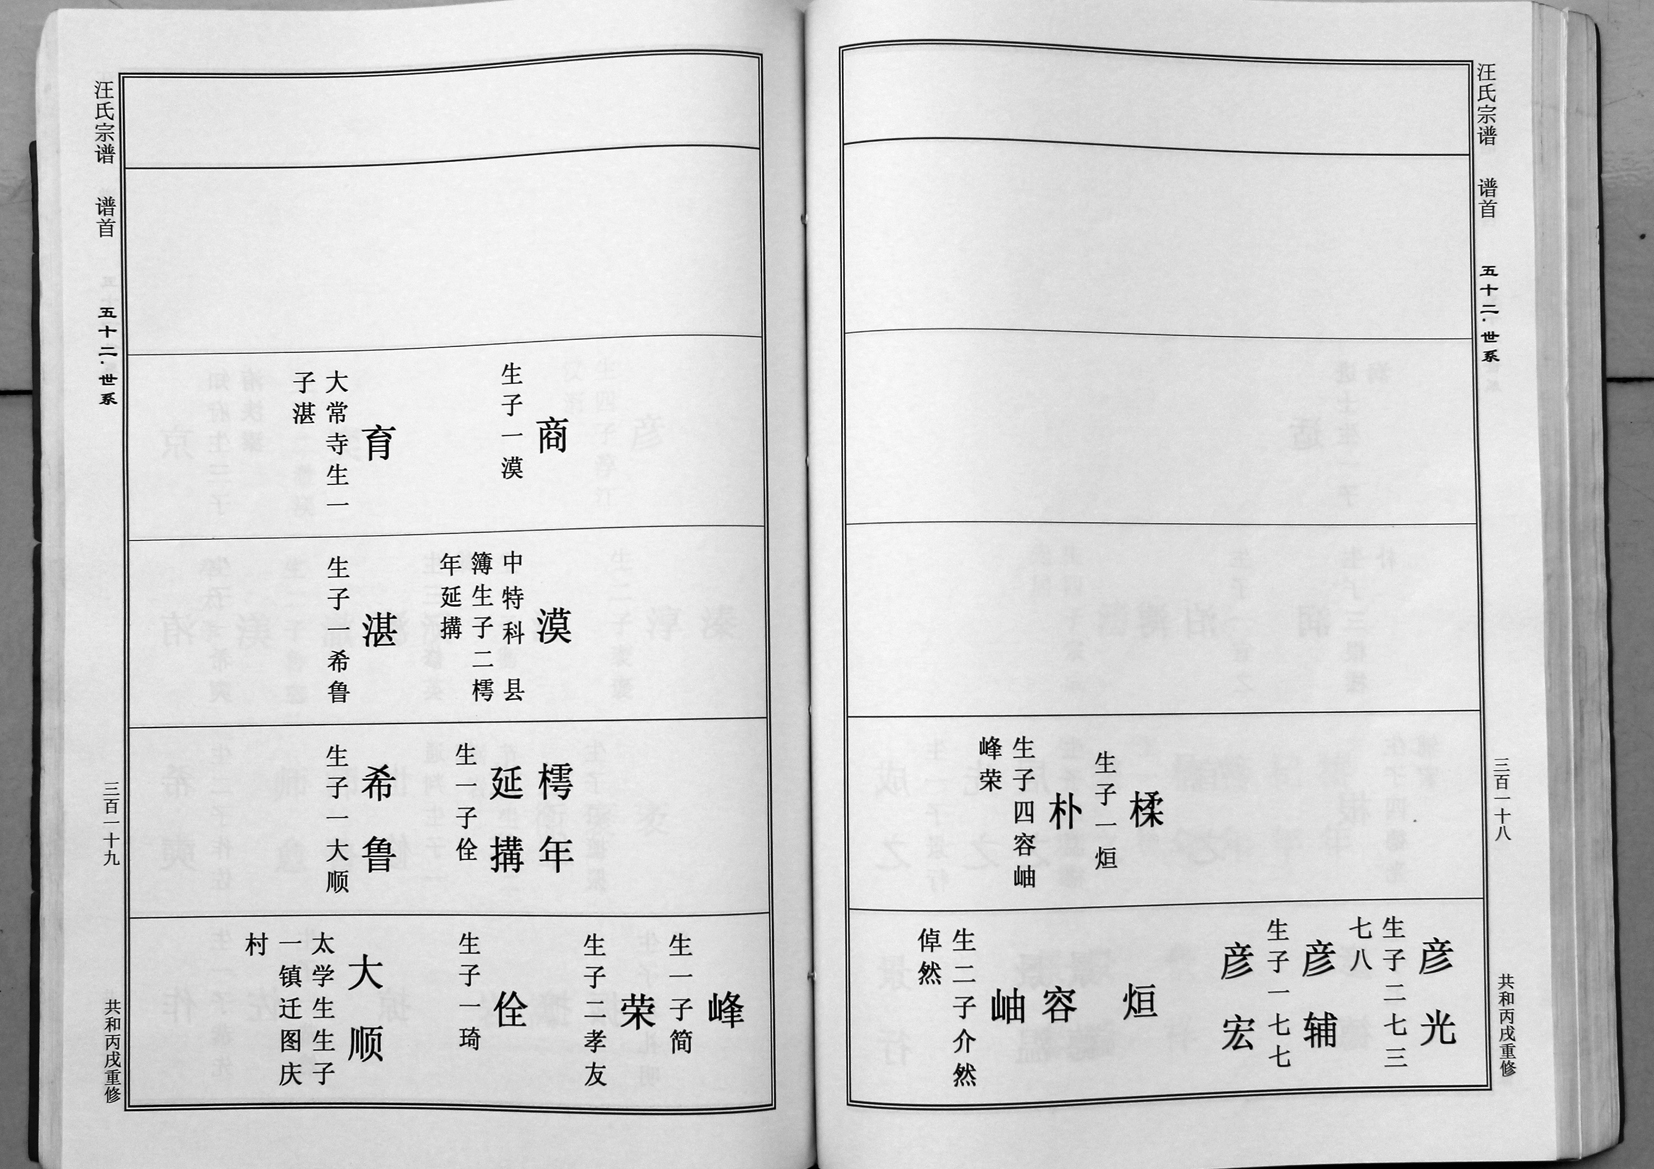 汪氏宗谱 谱首 五十二·世系 三百一十八 共和丙戌重修
楺
生子一烜
朴
生子四容岫
峰荣
彦光
生子二七三
七八
彦辅
生子一七七
彦宏
烜
容
岫
生二子介然
倬然
商
生子一漠
育
大常寺生一
子湛
漠
中特科县
簿生子二樗
年延搆
湛
生子一希鲁
樗年
延搆
生一子佺
希鲁
生子一大顺
峰
生一子简
荣
生子二孝友
佺
生子一琦
大顺
太学生生子
一镇迁图庆
村
汪氏宗谱 谱首 五十二·世系 三百一十九 共和丙戌重修